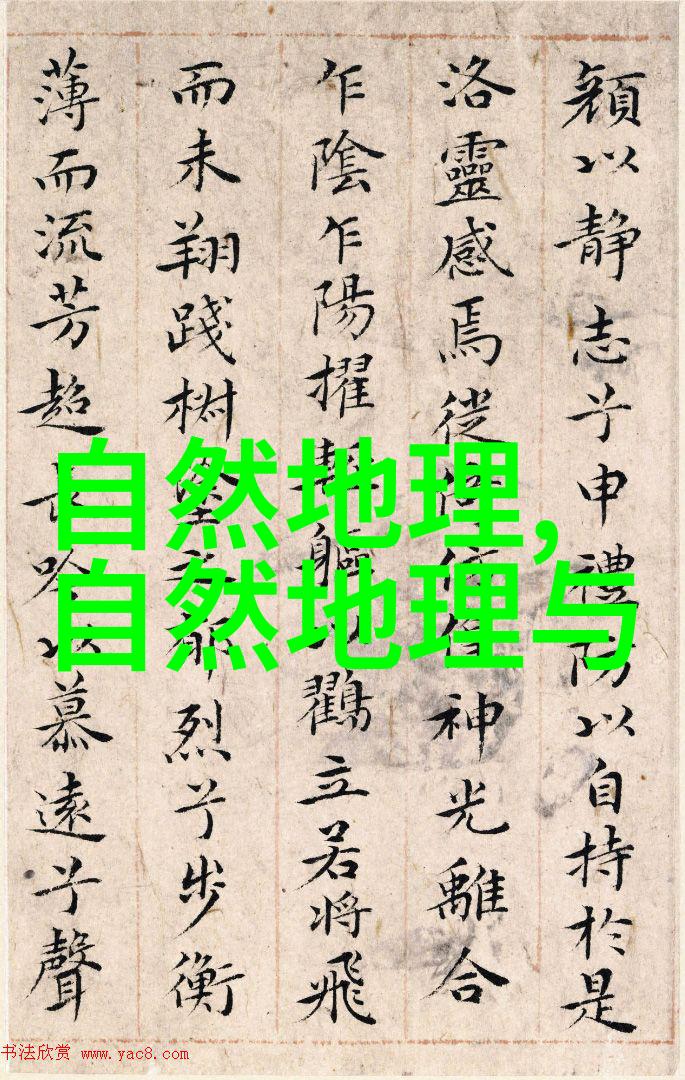 顔以静志兮申禮防以自持於是
洛靈感焉徙神光離合
乍陰乍陽擢軀以鶴立若將飛
而未翔踐椒烈兮步衡
薄而流芳超長吟以慕遠兮聲
自然地理,
自然地理与
书法欣赏 www.yac8.com